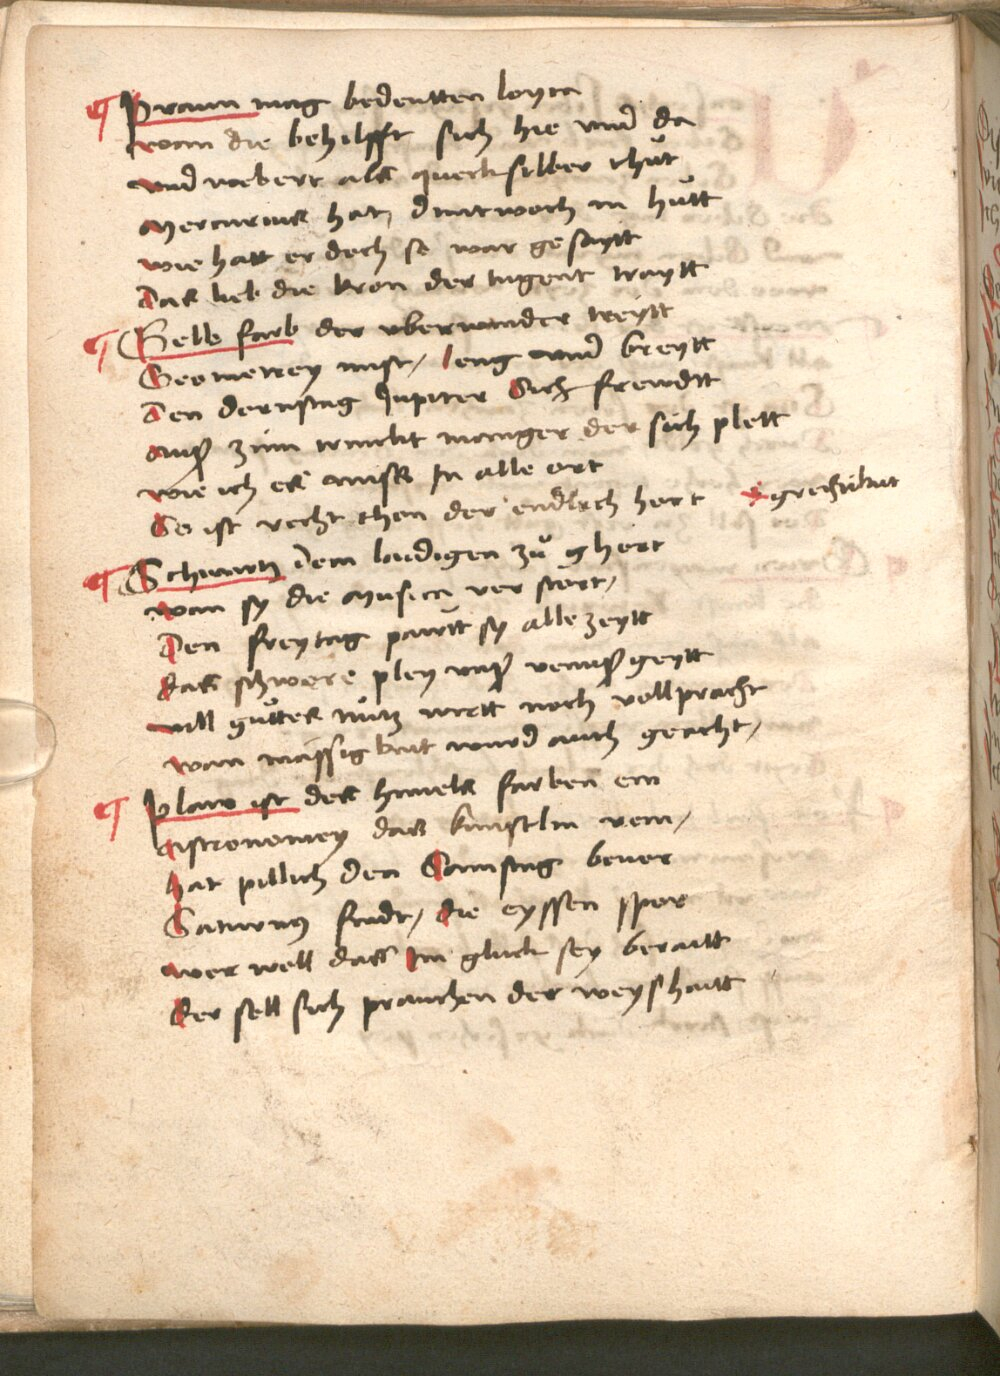 Praun mag bedeutten loyca
wan die behilfft sich hie vnd da
vnd webert als quecksilber thůt
Mercurius hat, dmitwoch in hůtt
wie hatt er doch so war gesaytt
Das lieb die kron der tugent traytt
Gelb farb der vberwinder treytt
Geometrey mist, leng vnd breytt
Den dornstag Jupiter Sich frewdtt
auß zinn macht maniger der sich plett
wie ich es amß In alle ort
So ist recht thon der endlich hort
gretikait
Schwartz dem laidigen zů ghort
wan sy die Musica verstört,
Den freytag pawtt sy alle zeytt
das schwere pley vnß venuß geytt
vill gůttes nůtz wirtt noch vollpracht
wan mässigkait wurd auch geacht,
Plaw ist des himels farben ein
Astronomey das kunstlin rein,
hat pillich den Samstag bevor
Saturnus findt, die eyssen spor
wer well das Im gluck sey beraitt
der sell sich prauchen der weyshaitt